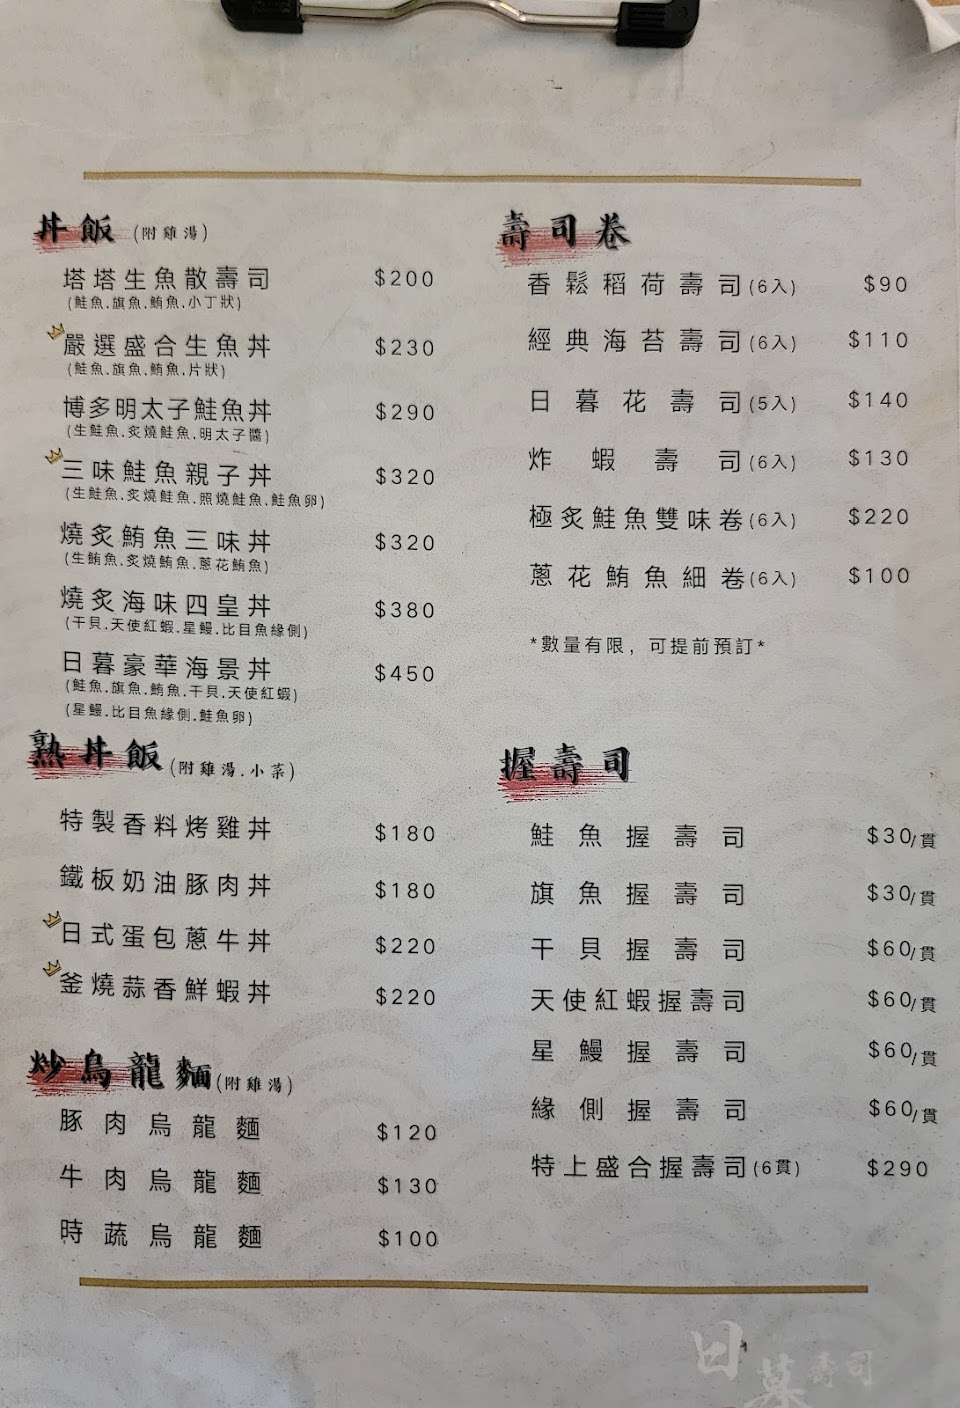 丼飯(附雞湯)
塔塔生魚散壽司 $200
(鮭魚.旗魚.鮪魚.小丁狀)
嚴選盛合生魚丼 $230
(鮭魚.旗魚.鮪魚.片狀)
博多明太子鮭魚丼 $290
(生鮭魚.炙燒鮭魚.明太子醬)
三味鮭魚親子丼 $320
(生鮭魚.炙燒鮭魚.照燒鮭魚.鮭魚卵)
燒炙鮪魚三味丼 $320
(生鮪魚.炙燒鮪魚.蔥花鮪魚)
燒炙海味四皇丼 $380
(干貝.天使紅蝦.星鰻.比目魚緣側)
日暮豪華海景丼 $450
(鮭魚.旗魚.鮪魚.干貝.天使紅蝦)
(星鰻.比目魚緣側.鮭魚卵)
熟丼飯(附雞湯.小菜)
特製香料烤雞丼 $180
鐵板奶油豚肉丼 $180
日式蛋包蔥牛丼 $220
釜燒蒜香鮮蝦丼 $220
炒烏龍麵(附雞湯)
豚肉烏龍麵 $120
牛肉烏龍麵 $130
時蔬烏龍麵 $100
壽司卷
香鬆稻荷壽司(6入) $90
經典海苔壽司(6入) $110
日暮花壽司(5入) $140
炸蝦壽司(6入) $130
極炙鮭魚雙味卷(6入) $220
蔥花鮪魚細卷(6入) $100
*數量有限，可提前預訂*
握壽司
鮭魚握壽司 $30/貫
旗魚握壽司 $30/貫
干貝握壽司 $60/貫
天使紅蝦握壽司 $60/貫
星鰻握壽司 $60/貫
緣側握壽司 $60/貫
特上盛合握壽司(6貫) $290
日暮壽司